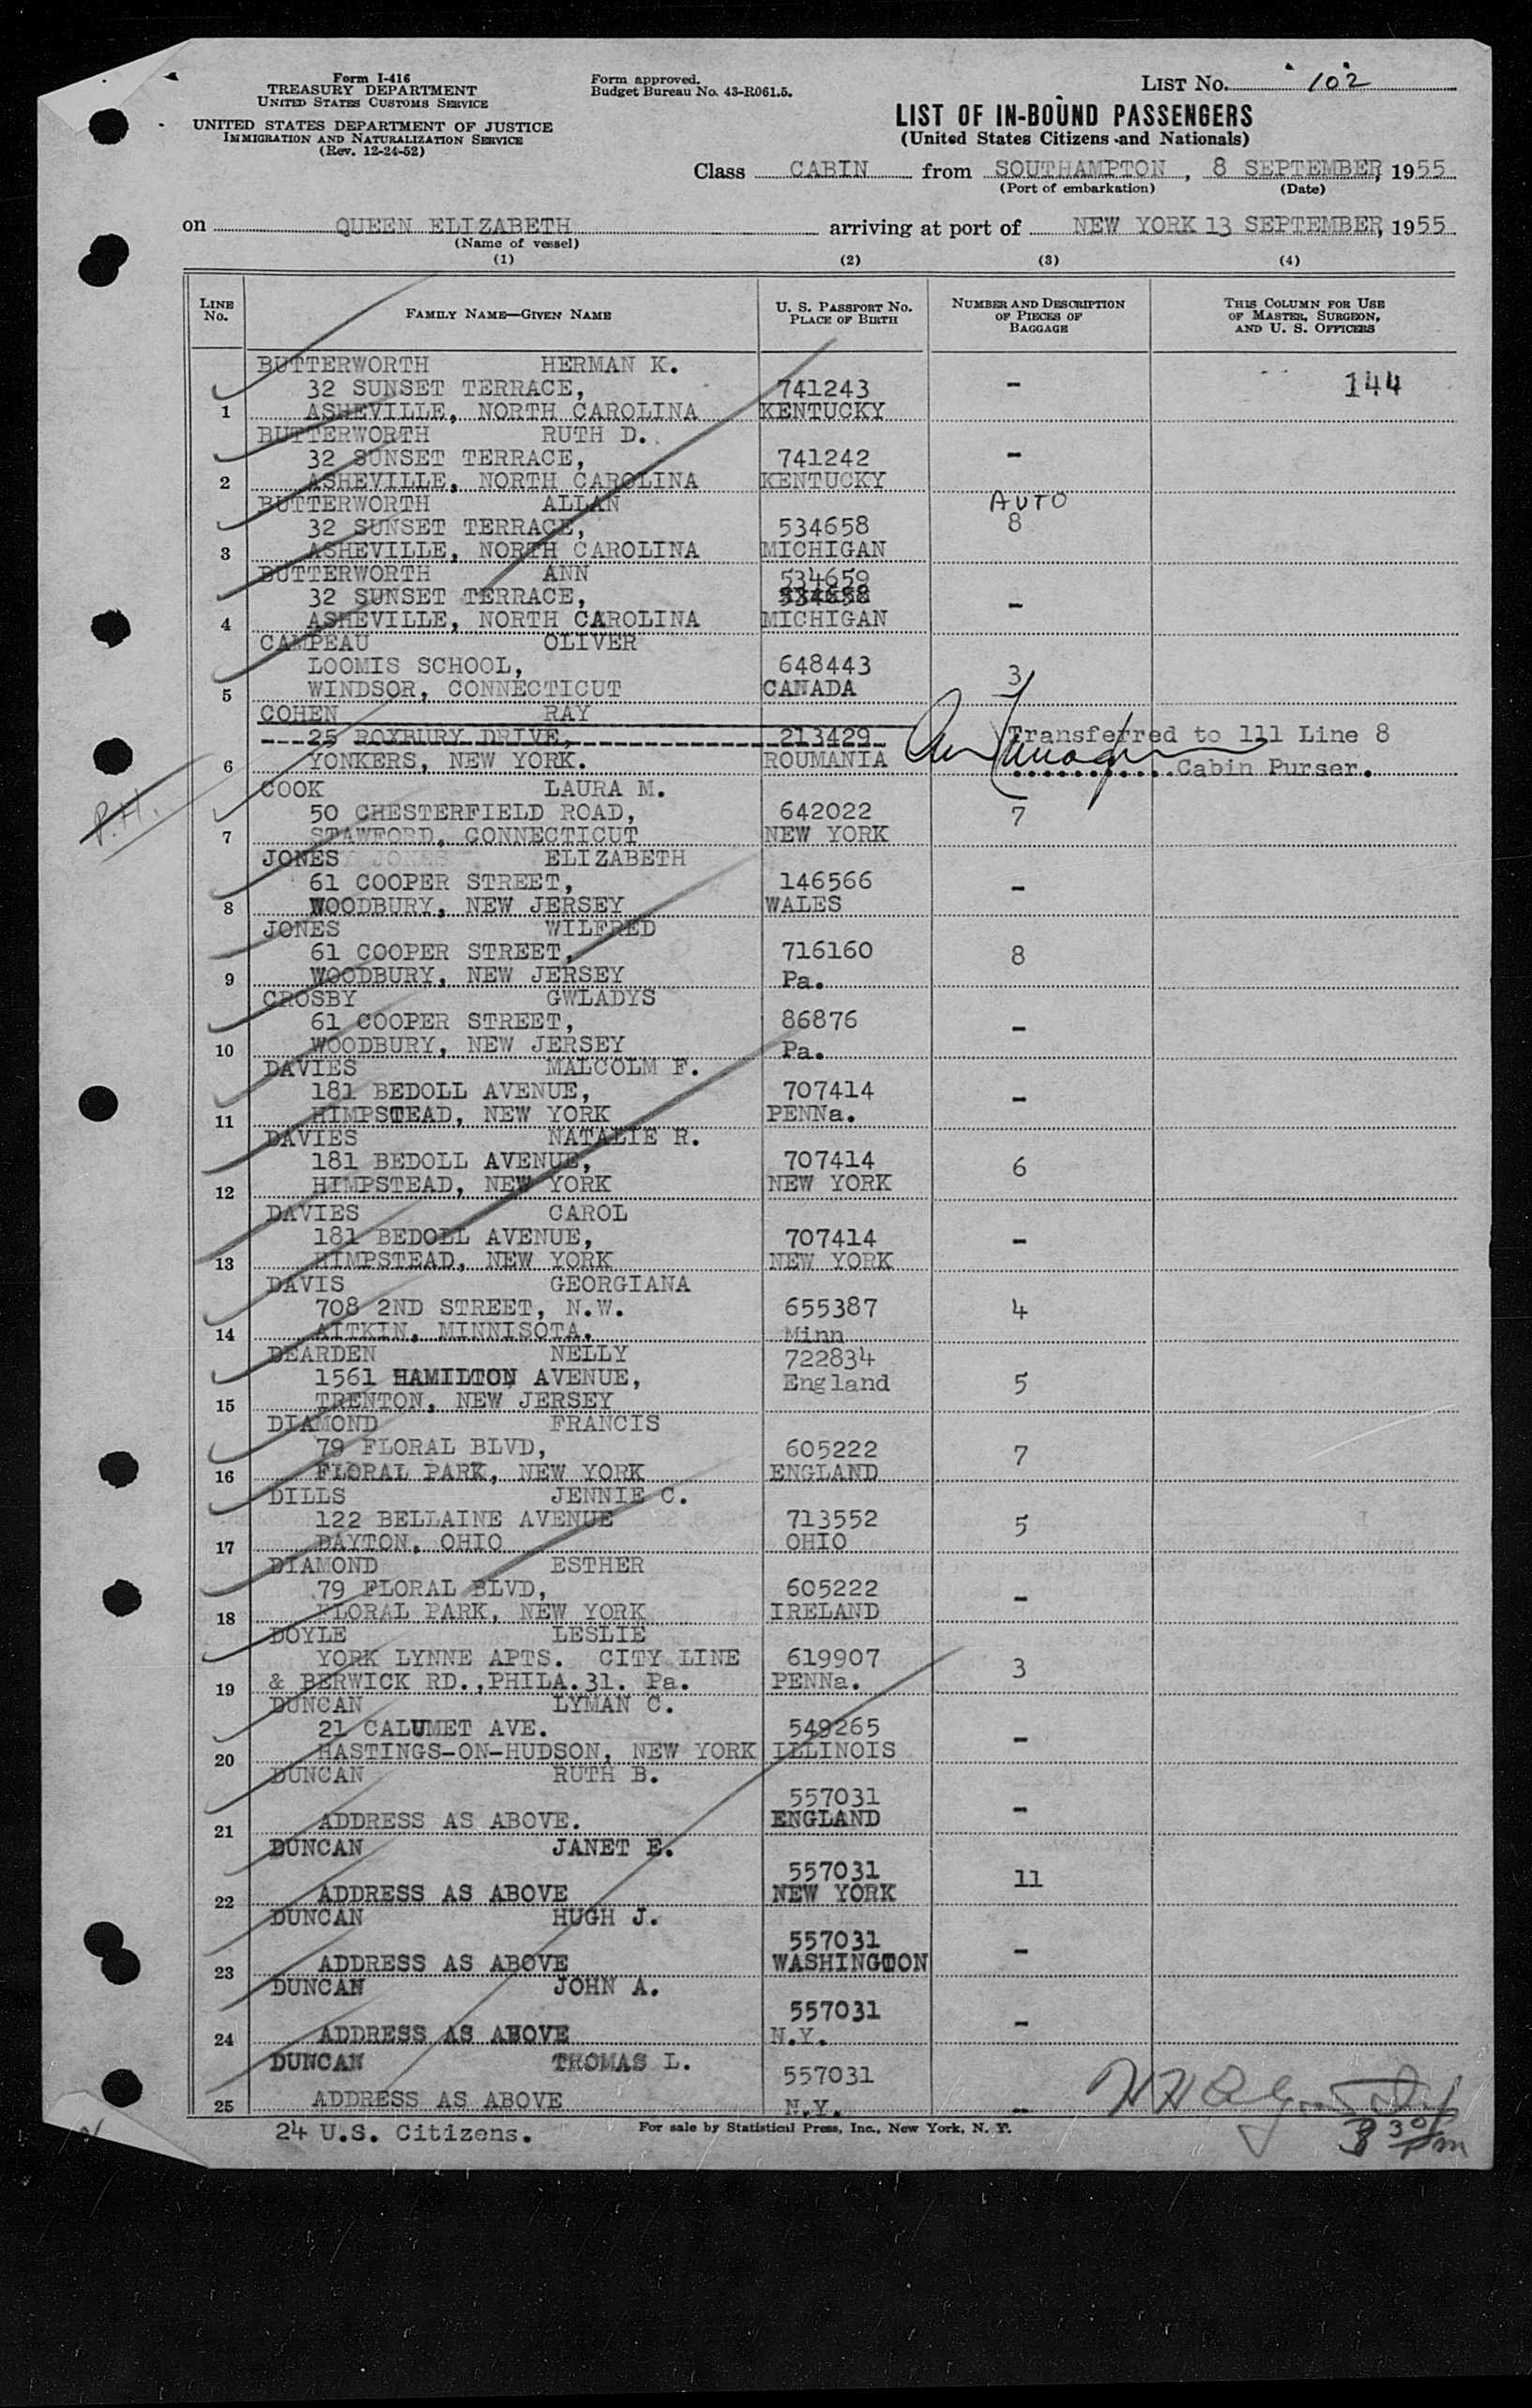 Form I-416
TREASURY DEPARTMENT
UNITED STATES CUSTOMS SERVICE
UNITED STATES DEPARTMENT OF JUSTICE
IMMIGRATION AND NATURALIZATION SERVICE
(Rev. 12-24-52)
Form approved.
Budget Bureau No. 43-R061.5.
LIST NO. 102
LIST OF IN-BOUND PASSENGERS
(United States Citizens and Nationals)
Class CABIN from SOUTHAMPTON, 8 SEPTEMBER, 1955
(Port of embarkation) (Date)
on QUEEN ELIZABETH arriving at port of NEW YORK 13 SEPTEMBER, 1955
(Name of vessel)
(1) (2) (3) (4)
LINE No. FAMILY NAME—GIVEN NAME U. S. PASSPORT NO. PLACE OF BIRTH NUMBER AND DESCRIPTION OF PIECES OF BAGGAGE THIS COLUMN FOR USE OF MASTER, SURGEON, AND U. S. OFFICERS
BUTTERWORTH HERMAN K.
32 SUNSET TERRACE, 741243 - 144
1 ASHEVILLE, NORTH CAROLINA KENTUCKY
BUTTERWORTH RUTH D.
32 SUNSET TERRACE, 741242 -
2 ASHEVILLE, NORTH CAROLINA KENTUCKY
BUTTERWORTH ALLAN AUTO
32 SUNSET TERRACE, 534658 8
3 ASHEVILLE, NORTH CAROLINA MICHIGAN
BUTTERWORTH ANN 534659
32 SUNSET TERRACE, 534658 -
4 ASHEVILLE, NORTH CAROLINA MICHIGAN
CAMPEAU OLIVER
LOOMIS SCHOOL, 648443 3
5 WINDSOR, CONNECTICUT CANADA
COHEN RAY
25 ROXBURY DRIVE, 213429 Transferred to 111 Line 8
6 YONKERS, NEW YORK. ROUMANIA Cabin Purser.
P.H.
COOK LAURA M.
50 CHESTERFIELD ROAD, 642022 7
7 STAWFORD, CONNECTICUT NEW YORK
JONES ELIZABETH
61 COOPER STREET, 146566 -
8 WOODBURY, NEW JERSEY WALES
JONES WILFRED
61 COOPER STREET, 716160 8
9 WOODBURY, NEW JERSEY Pa.
CROSBY GWLADYS
61 COOPER STREET, 86876 -
10 WOODBURY, NEW JERSEY Pa.
DAVIES MALCOLM F.
181 BEDOLL AVENUE, 707414 -
11 HIMPSTEAD, NEW YORK PENNa.
DAVIES NATALIE R.
181 BEDOLL AVENUE, 707414 6
12 HIMPSTEAD, NEW YORK NEW YORK
DAVIES CAROL
181 BEDOLL AVENUE, 707414 -
13 HIMPSTEAD, NEW YORK NEW YORK
DAVIS GEORGIANA
708 2ND STREET, N.W. 655387 4
14 AITKIN, MINNISOTA. Minn
DEARDEN NELLY 722834
1561 HAMILTON AVENUE, England 5
15 TRENTON, NEW JERSEY
DIAMOND FRANCIS
79 FLORAL BLVD, 605222 7
16 FLORAL PARK, NEW YORK ENGLAND
DILLS JENNIE C.
122 BELLAINE AVENUE 713552 5
17 DAYTON, OHIO OHIO
DIAMOND ESTHER
79 FLORAL BLVD, 605222 -
18 FLORAL PARK, NEW YORK IRELAND
DOYLE LESLIE
YORK LYNNE APTS. CITY LINE 619907 3
19 & BERWICK RD.,PHILA.31. Pa. PENNa.
DUNCAN LYMAN C.
21 CALUMET AVE. 549265 -
20 HASTINGS-ON-HUDSON, NEW YORK ILLINOIS
DUNCAN RUTH B.
557031 -
21 ADDRESS AS ABOVE. ENGLAND
DUNCAN JANET E.
557031 11
22 ADDRESS AS ABOVE NEW YORK
DUNCAN HUGH J.
557031 -
23 ADDRESS AS ABOVE WASHINGTON
DUNCAN JOHN A.
557031 -
24 ADDRESS AS ABOVE N.Y.
DUNCAN THOMAS L.
557031
25 ADDRESS AS ABOVE N.Y. -
24 U.S. Citizens. For sale by Statistical Press, Inc., New York, N. Y.
3 30 pm